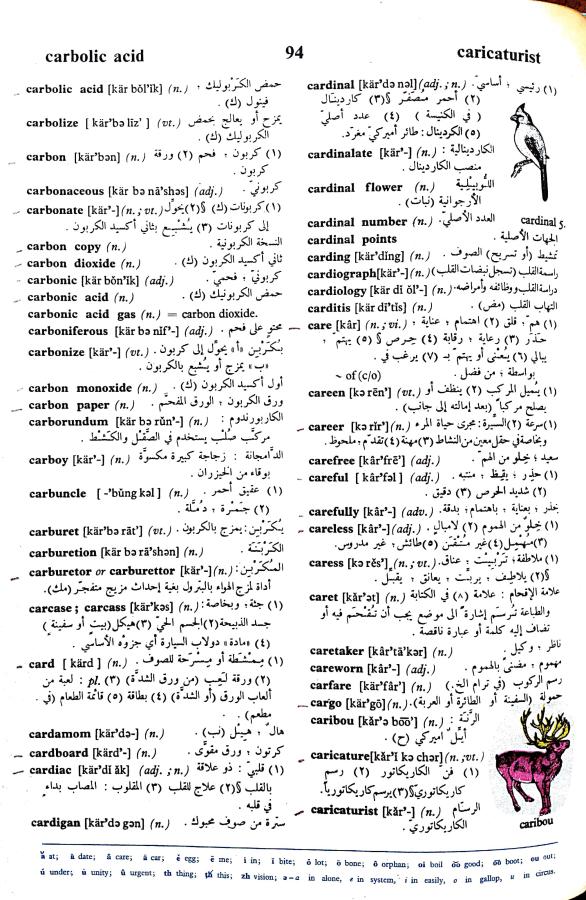 carbolic acid
94
caricaturist
carbolic acid [kär bŏl'ĭk] (n.) حمض الكَرْبوليك ؛
فينول (ك) .
carbolize [kär'bə līz'] (vt.) يمزج أو يعالج بحمض
الكربوليك (ك) .
carbon [kär'bən] (n.) (١) كربون ؛ فحم (٢) ورقة
كربون .
carbonaceous [kär bə nā'shəs] (adj.) كربونيّ .
carbonate [kär'-] (n.; vt.) (١) كربونات (ك) §(٢) يحوِّل
إلى كربونات (٣) يُشْبِع بثاني أكسيد الكربون .
carbon copy (n.) النسخة الكربونية .
carbon dioxide (n.) ثاني أكسيد الكربون (ك) .
carbonic [kär bŏn'ĭk] (adj.) كربونيّ ؛ فحميّ .
carbonic acid (n.) حمض الكربونيك (ك) .
carbonic acid gas (n.) = carbon dioxide.
carboniferous [kär bə nĭf'-] (adj.) محتوٍ على فحم .
carbonize [kär'-] (vt.) يُكَرْبِن «أ» يحوِّل إلى كربون .
«ب» يمزج أو يُشبع بالكربون .
carbon monoxide (n.) أول أكسيد الكربون (ك) .
carbon paper (n.) ورق الكربون ؛ الورق المفحَّم .
carborundum [kär bə rŭn'-] (n.) الكاربورندوم :
مركَّب صُلْب يستخدم في الصَّقْل والكشط .
carboy [kär'-] (n.) الدَّامجانة : زجاجة كبيرة مكسوَّة
بوقاء من الخيزران .
carbuncle [-'bŭng kəl] (n.) (١) عقيق أحمر .
(٢) جَمْرة ؛ دُمَّلة .
carburet [kär'bə rāt'] (vt.) يُكَرْبِن: يمزج بالكربون .
carburetion [kär bə rā'shən] (n.) الكَرْبَنَة .
carburetor or carburettor [kär'-] (n.) المُكَرْبِن :
أداة لمزج الهواء بالبترول بغية إحداث مزيج متفجر (ملك) .
carcase; carcass [kär'kəs] (n.) (١) جثة ؛ وبخاصة :
جسد الذبيحة (٢) الجسم الحيّ (٣) هيكل (بيتٍ أو سفينةٍ)
(٤) «مادة» دولاب السيارة أي جزؤه الأساسي .
card [kärd] (n.) (١) مِمْشَطَة أو مِسْرَحة للصوف .
(٢) ورقة لَعِب (من ورق الشدّة) (٣) pl. : لعبة من
ألعاب الورق (أو الشدّة) (٤) بطاقة (٥) قائمة الطعام (في
مطعم) .
cardamom [kär'də-] (n.) هال ؛ هِيل (نب) .
cardboard [kärd'-] (n.) كرتون ؛ ورق مقوّى .
cardiac [kär'dĭ ăk] (adj.; n.) (١) قلبيّ : ذو علاقة
بالقلب §(٢) علاج للقلب (٣) المقلوب : المصاب بداء
في قلبه .
cardigan [kär'də gən] (n.) سترة من صوف محبوك .
cardinal [kär'də nəl] (adj.; n.) (١) رئيسي ؛ أساسيّ .
(٢) أحمر مُصْفَرّ §(٣) كاردينال
(في الكنيسة) (٤) عدد أصليّ
(٥) الكردينال : طائر أميركي مغرّد.
cardinalate [kär'-] (n.) الكاردينالية :
منصب الكاردينال .
cardinal flower (n.) اللُّوبيلية
الأرجوانية (نبات) .
cardinal number (n.) العدد الأصليّ .
cardinal 5.
cardinal points الجهات الأصلية .
carding [kär'dĭng] (n.) تمشيط (أو تسريح) الصوف .
cardiograph [kär'-] (n.) راسمة القلب (تسجل نبضات القلب)
cardiology [kär dĭ ŏl'-] (n.) دراسة القلب وظائفه وأمراضه .
carditis [kär dī'tĭs] (n.) التهاب القلب (مض) .
care [kâr] (n.; vi.) (١) همّ ؛ قلق (٢) اهتمام ؛ عناية ؛
حذَر (٣) رعاية ؛ رقابة (٤) حِرص §(٥) يهتم ؛
يبالي (٦) يُعْنى أو يهتم بـ (٧) يرغب في .
~ of (c/o) بواسطة ؛ من فضل .
careen [kə rēn'] (vt.) (١) يُميل المركب (٢) ينظف أو
يصلح مركباً (بعد إمالته إلى جانب) .
career [kə rĭr'] (n.) (١) سرعة (٢) السيرة: مجرى حياة المرء
وبخاصة في حقل معين من النشاط (٣) مهنة (٤) تقدّم ملحوظ .
carefree [kâr'frē'] (adj.) سعيد ؛ خِلوٌ من الهمّ .
careful [kâr'fəl] (adj.) (١) حذِر ؛ يقِظ ؛ منتبه .
(٢) شديد الحرص (٣) دقيق .
carefully [kâr'-] (adv.) بحذر ؛ بعناية ؛ باهتمام ؛ بدقة .
careless [kâr'-] (adj.) (١) خِلوٌ من الهموم (٢) لامبالٍ
(٣) مُهمِل (٤) غير مُتْقَن (٥) طائش ؛ غير مدروس .
caress [kə rĕs'] (n.; vt.) (١) ملاطفة ؛ تربيت ؛ عناق .
§(٢) يلاطف ؛ يربِّت ؛ يعانق ؛ يقبّل .
caret [kăr'ət] (n.) علامة الإقحام : علامة (٨) في الكتابة
والطباعة تُرسَم إشارةً الى موضع يجب أن تُقْحَم فيه أو
تضاف إليه كلمة أو عبارة ناقصة .
caretaker [kâr'tā'kər] (n.) ناظر ؛ وكيل .
careworn [kâr'-] (adj.) مهموم ؛ مضنىً بالهموم .
carfare [kär'fâr'] (n.) رسم الركوب (في ترام الخ.)
cargo [kär'gō] (n.) حمولة (السفينة أو الطائرة أو العربة) .
caribou [kăr'ə bōō'] (n.) الرَّنَّة :
أيّل أميركي (ح) .
caricature [kăr'ĭ kə chər] (n.; vt.)
(١) فنّ الكاريكاتور (٢) رسم
كاريكاتوريّ §(٣) يرسم كاريكاتورياً.
caricaturist [kăr'-] (n.) الرسّام
الكاريكاتوري .
caribou
ă at; ā date; â care; ä car; ĕ egg; ē me; ĭ in; ī bite; ŏ lot; ō bone; ô orphan; oi boil; ŏŏ good; ōō boot; ou out;
ŭ under; ū unity; û urgent; th thing; th this; zh vision; ə=a in alone, e in system, i in easily, o in gallop, u in circus.